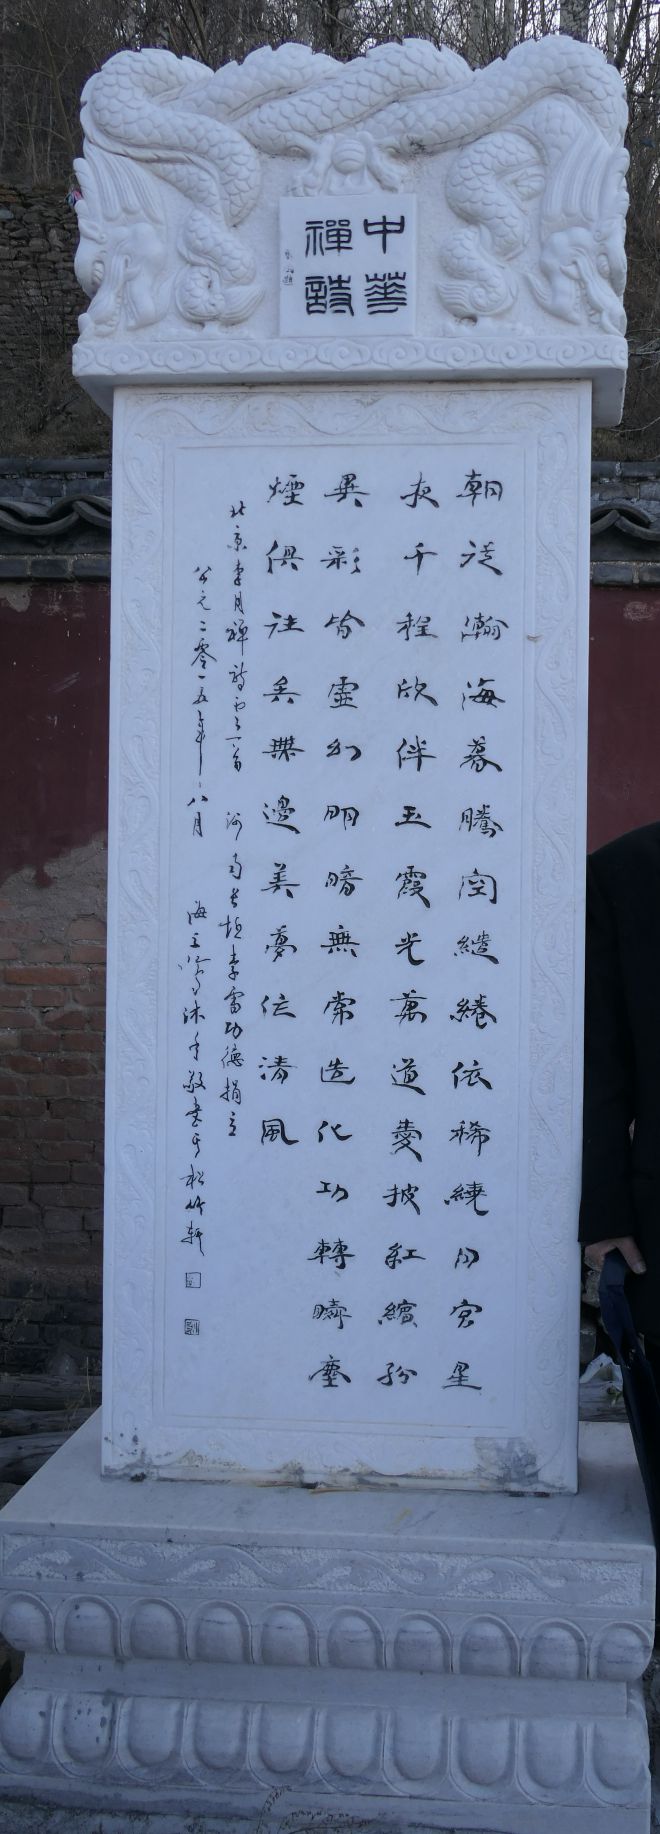 中華
禪詩
朝從瀚海暮騰空繾綣依稀繞月宮星
夜千程欣伴玉霞光萬道愛披紅繽紛
異彩皆靈幻明暗無常造化功轉瞬塵
煙俱往矣無邊美夢任清風
北京 月禪詩之一首 河南長垣李雷功德捐立
公元二零一五年八月 海 沐手敬書於松竹軒